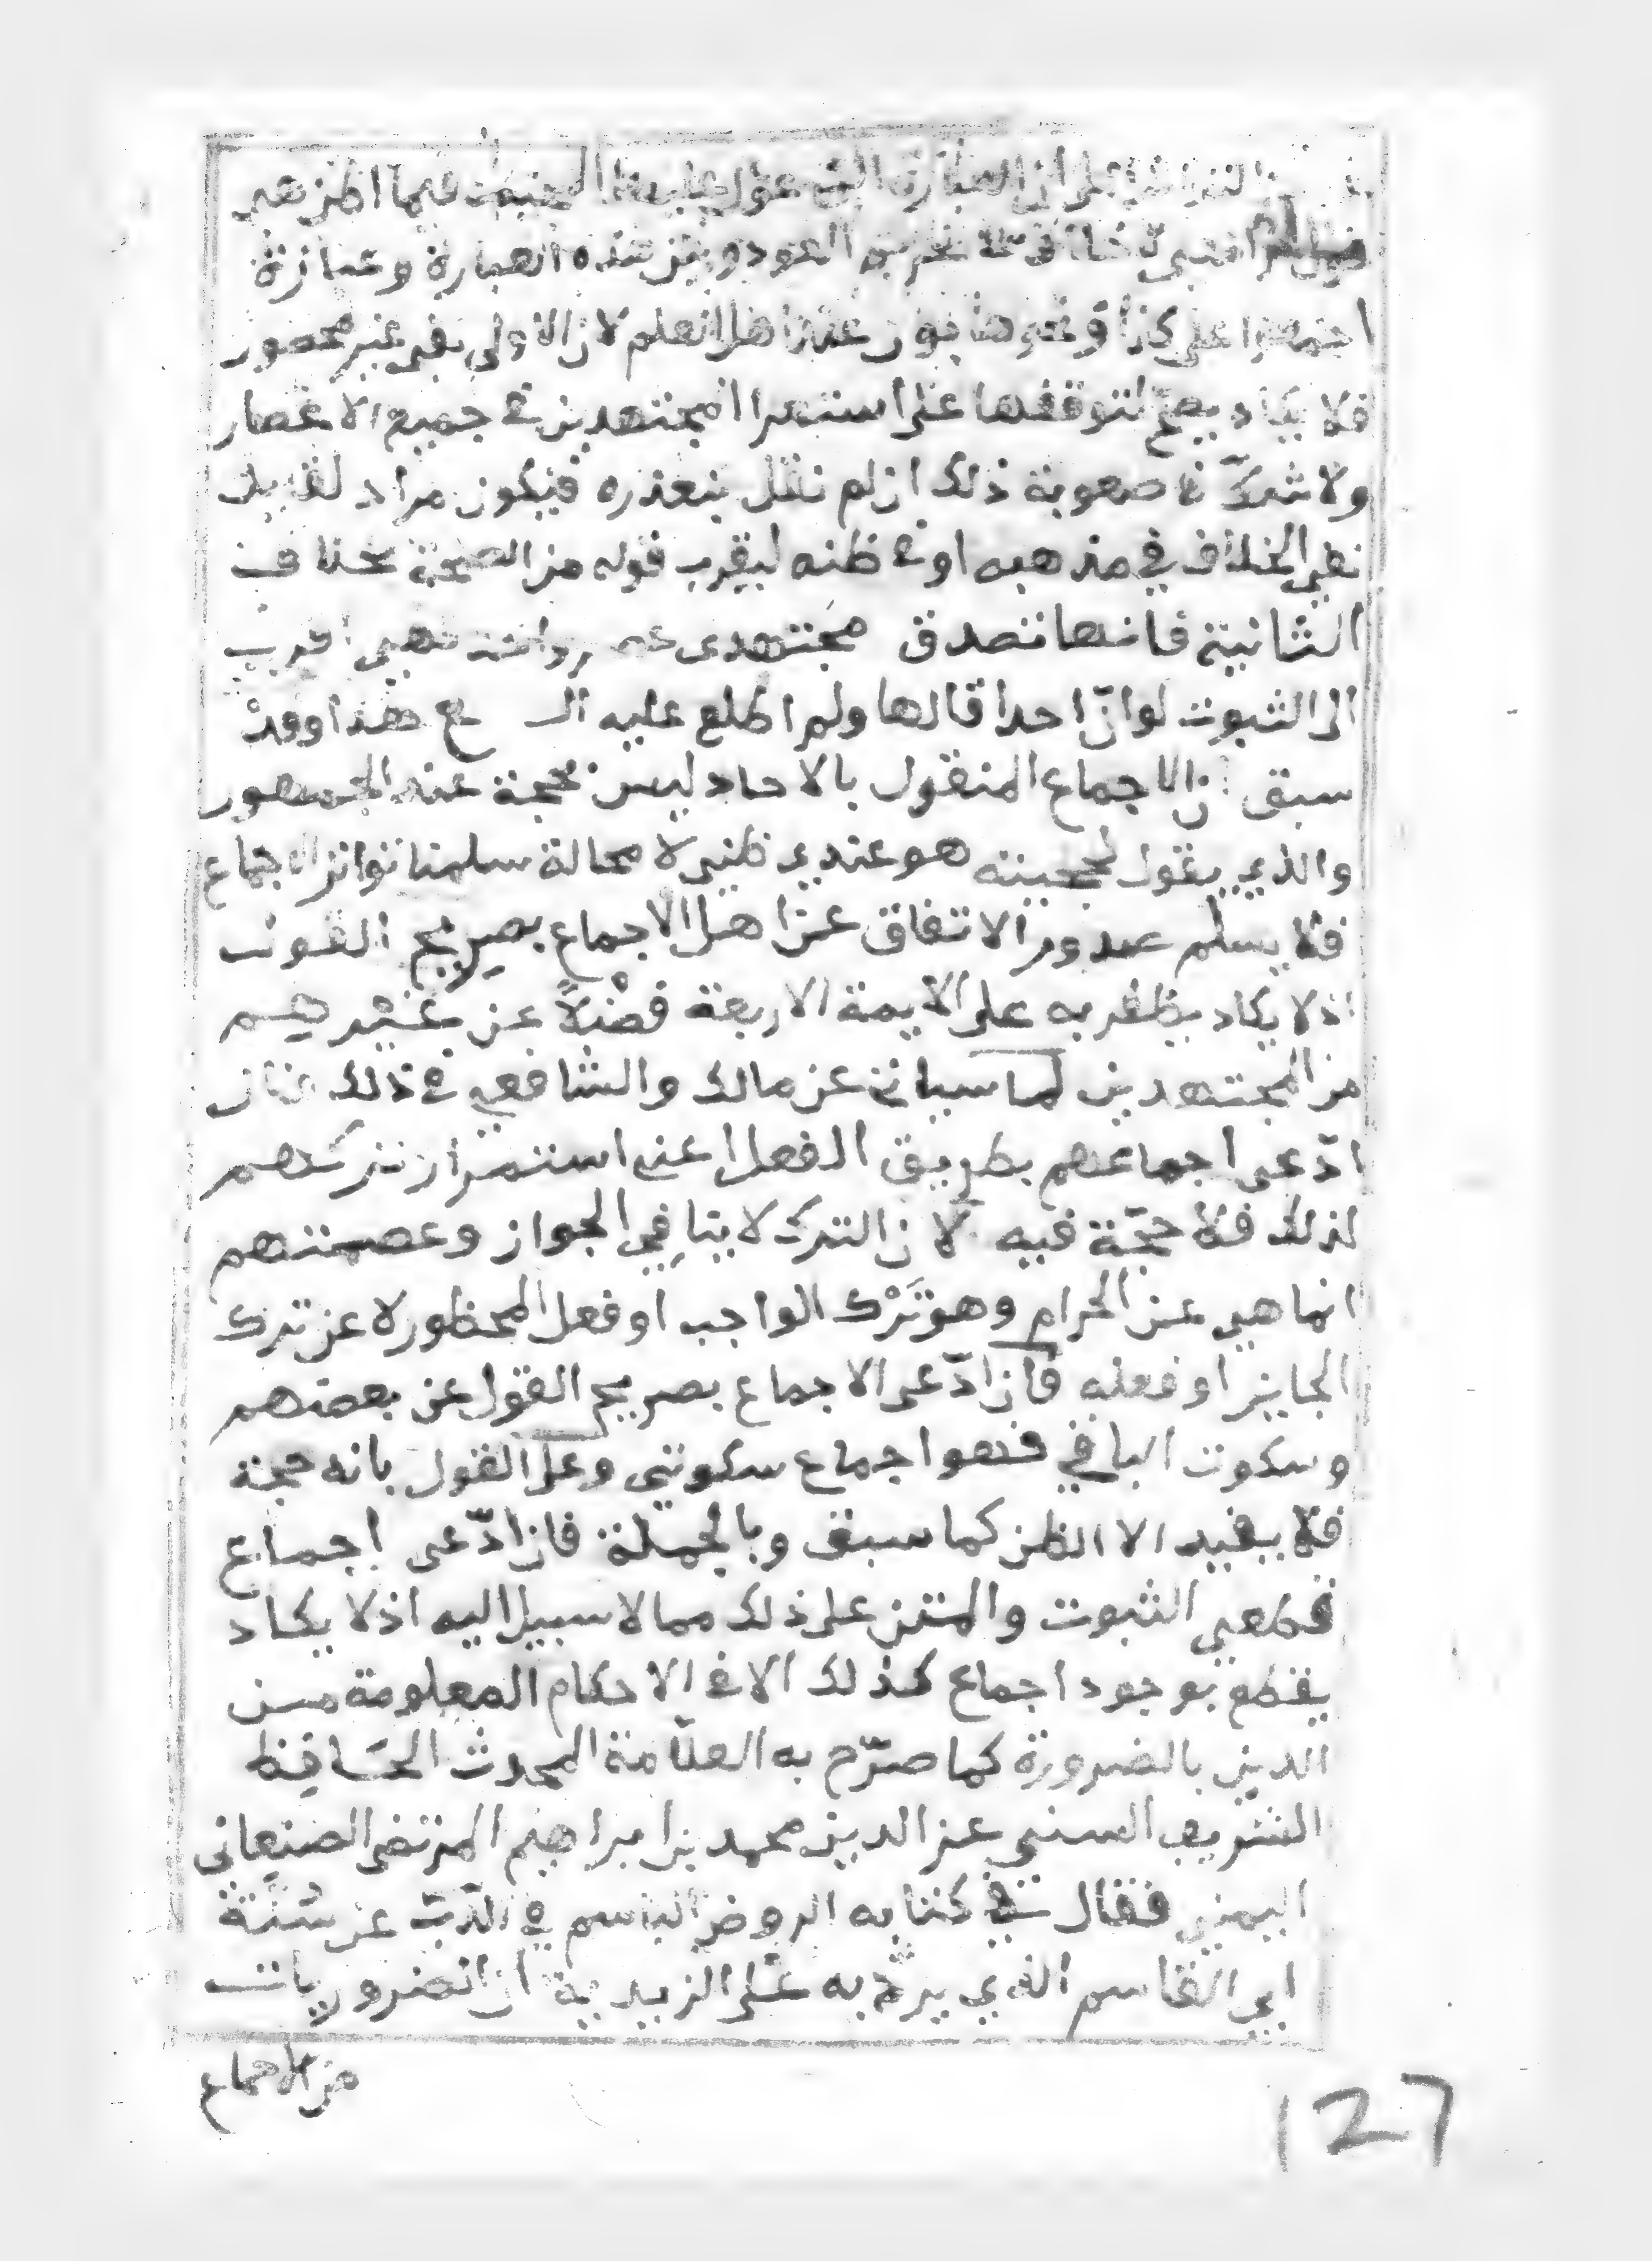 على ان العبارة التى عول عليها فيما اظن هى
لا خلاف فى تحريم العود وبين هذه العبارة وعبارة
اجمعوا على كذا ونحوها بون عند اهل العلم لان الاولى نفى غير محصور
فلا يكاد يصح لتوقفها على استقرا المجتهدين فى جميع الاعصار
ولا شك فى صعوبة ذلك ان لم نقل بتعذره فيكون مراد
نفى الخلاف في مذهبه او فى ظنه ليقرب قوله من الصحة بخلاف
الثانية فانها تصدق مجتهدى فهى اقرب
الى الثبوت لو انّ احدا قالها ولم اطلع عليه هذا وقدْ
سبق ان الاجماع المنقول بالاحاد ليس بحجة عند الجمهور
والذي يقول بحجيته هو عنده ظني لا محالة سلمنا تواتر الاجماع
فلا يسلم صدور الاتفاق عن اهل الاجماع بصريح القول
اذ لا يكاد يظفر به على الايمة الاربعة فضْلاً عن غيْرهم
من المجتهدين لما سياتى عن مالك والشافعي في ذلك فان
ادّعى اجماعهم بطريق الفعل اعنى استمرار تركهم
لذلك فلا حجّة فيه لان الترك لا ينافي الجواز وعصمتهم
انما هي عن الحرام وهو تَرْك الواجب او فعل المحظور لا عن ترك
الجايز او فعله فان ادّعى الاجماع بصريح القول عن بعضهم
وسكوت الباقي فهو اجماع سكوتي وعلى القول بانه حجة
فلا يفيد الا الظن كما سبق وبالجملة فان ادّعى اجماع
قطعي الثبوت والمتن على ذلك مما لا سبيل اليه اذ لا يكاد
يقطع بوجود اجماع كذلك الا فى الاحكام المعلومة من
الدين بالضرورة كما صرّح به العلّامة المحدث الحافظ
الشريف السني عز الدين محمد بن ابراهيم المرتضى الصنعاني
اليمني فقال في كتابه الروض الباسم في الذّبّ عن سُنَّة
ابي القاسم الذي يردّ به على الزيدية ان الضروريات
من الاجماع
127